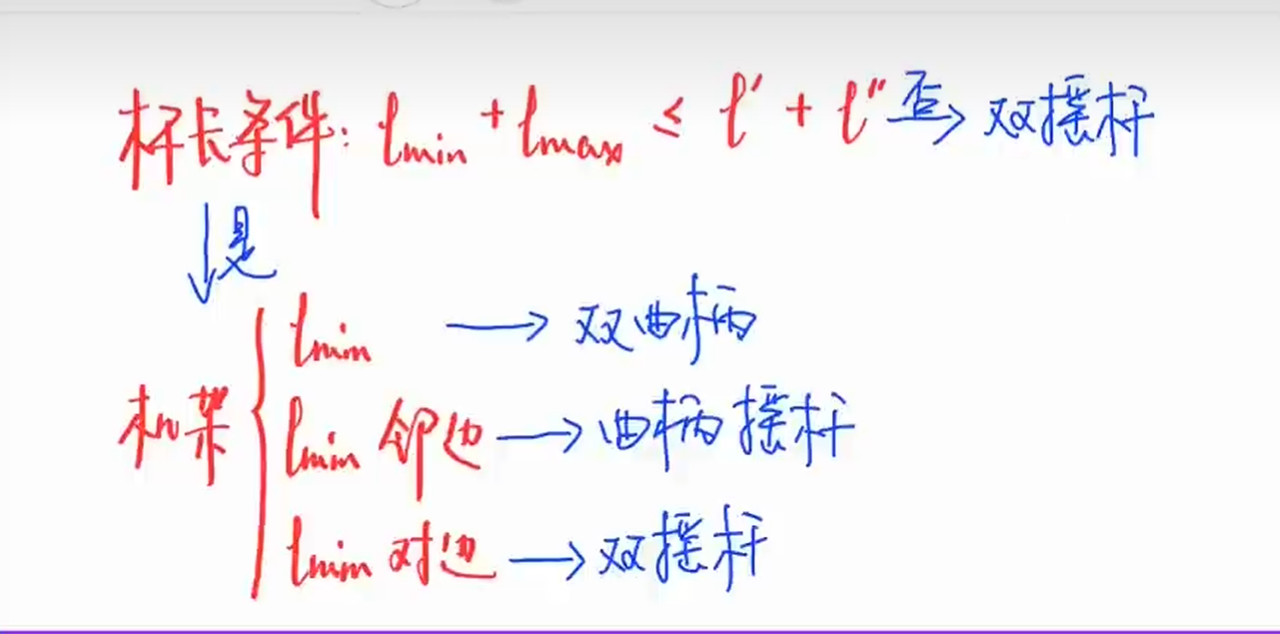 杆长条件: lmin + lmax ≤ l′ + l″ 否→ 双摇杆
↓是
lmin → 双曲柄
机架 { lmin 邻边 → 曲柄摇杆
lmin 对边 → 双摇杆